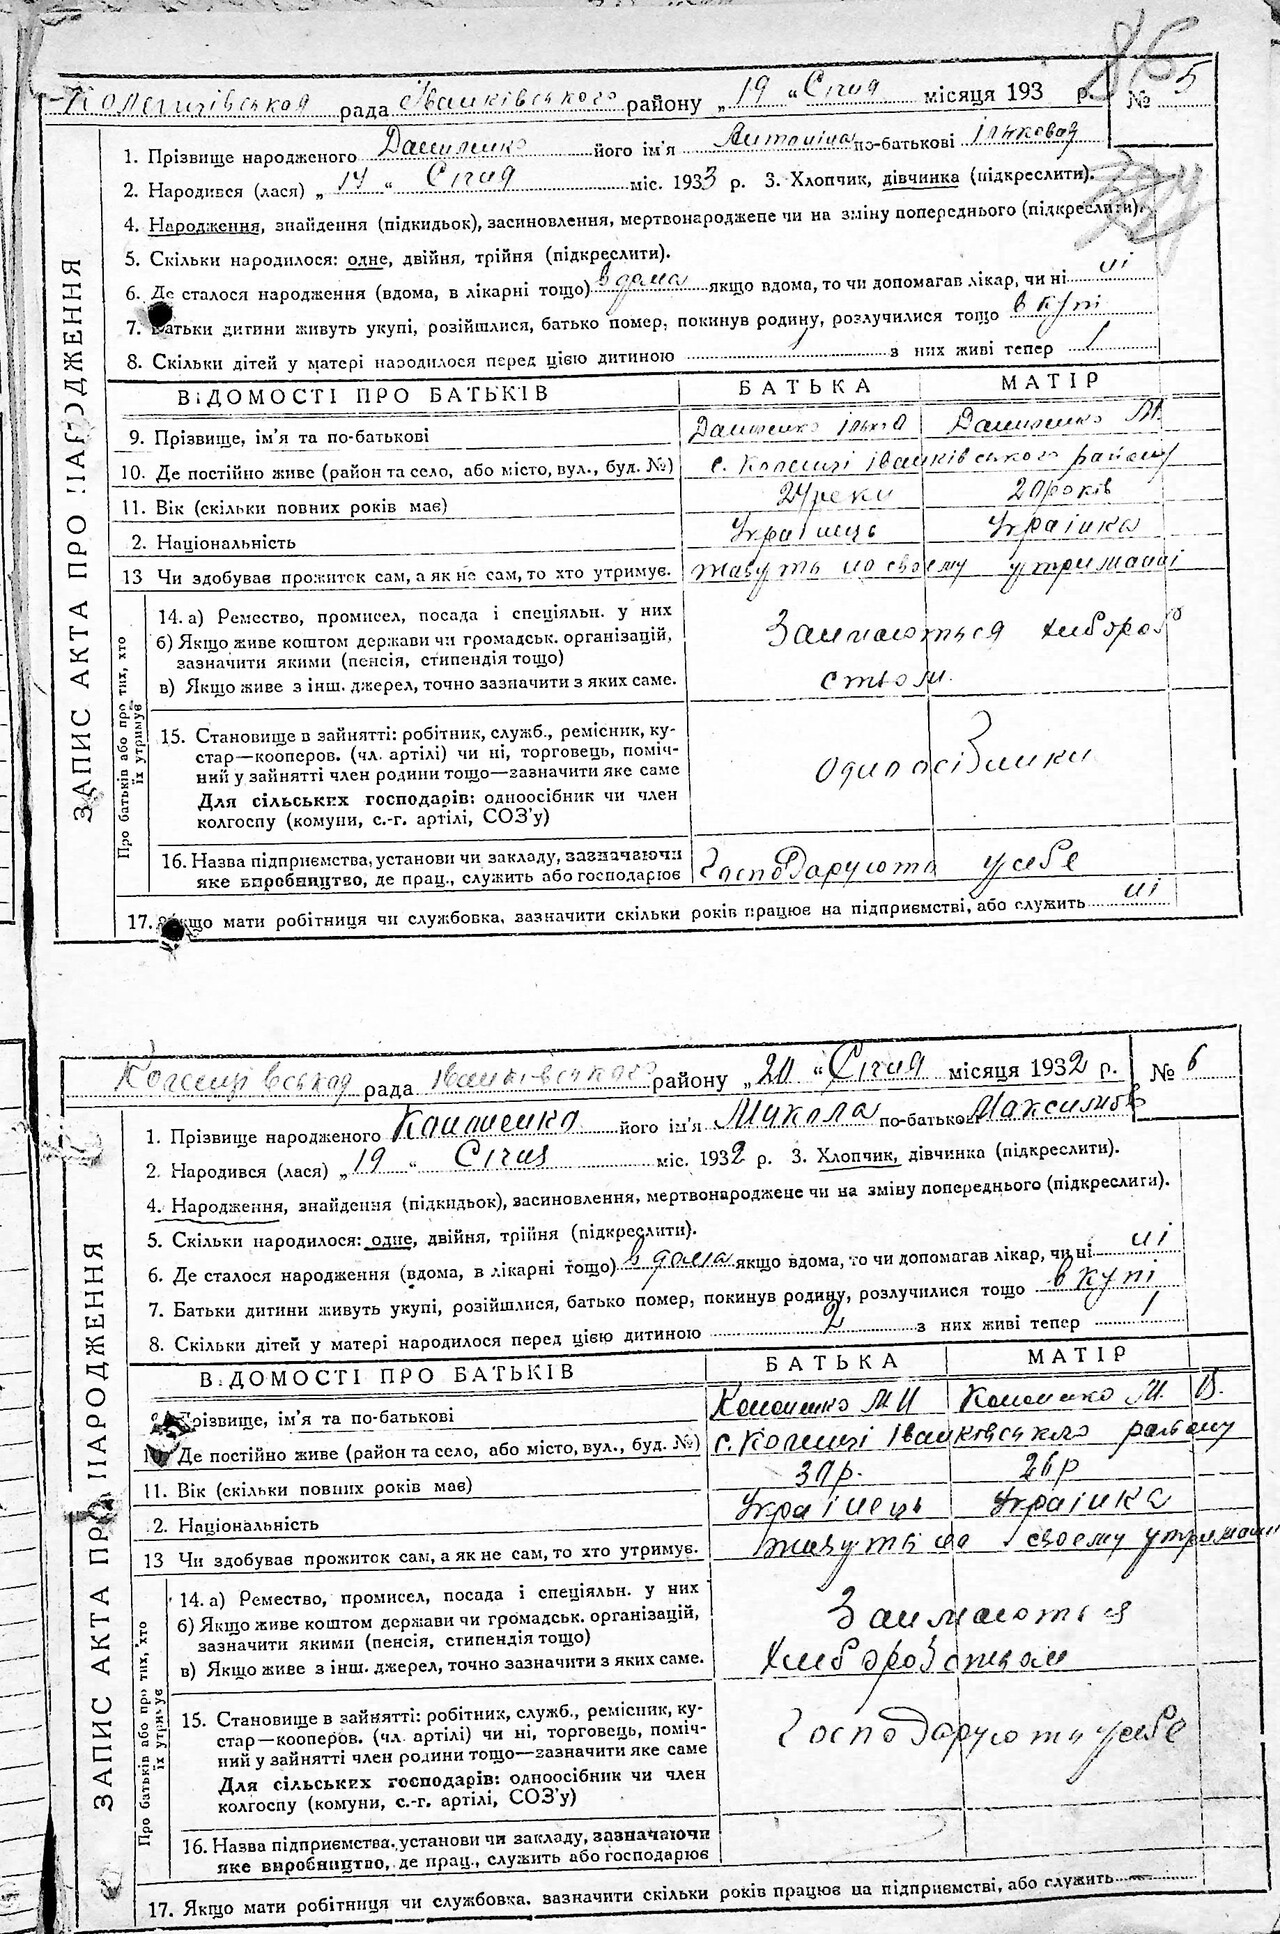 86
рада Іванківського району „19“ Січня місяця 193 р. № 5
ЗАПИС АКТА ПРО НАРОДЖЕННЯ
1. Прізвище народженого його ім'я Антоніна по-батькові Ільковая
2. Народився (лася) „ “ Січня міс. 1933 р. 3. Хлопчик, дівчинка (підкреслити).
4. Народження, знайдення (підкидьок), засиновлення, мертвонароджене чи на зміну попереднього (підкреслити).
5. Скільки народилося: одне, двійня, трійня (підкреслити).
6. Де сталося народження (вдома, в лікарні тощо) вдома якщо вдома, то чи допомагав лікар, чи ні ні
7. Батьки дитини живуть укупі, розійшлися, батько помер, покинув родину, розлучилися тощо в купі
8. Скільки дітей у матері народилося перед цією дитиною 1 з них живі тепер 1
ВІДОМОСТІ ПРО БАТЬКІВ БАТЬКА МАТІР
9. Прізвище, ім'я та по-батькові
10. Де постійно живе (район та село, або місто, вул., буд. №) с. Коленці Іванківського району
11. Вік (скільки повних років має) 20 років
2. Національність Украінець Украінка
13 Чи здобував прожиток сам, а як не сам, то хто утримує. живуть на своему утриманні
Про батьків або про тих, хто їх утримує
14. а) Ремество, промисел, посада і спеціяльн. у них
б) Якщо живе коштом держави чи громадськ. організацій,
зазначити якими (пенсія, стипендія тощо)
в) Якщо живе з інш. джерел, точно зазначити з яких саме.
Займаються хлібороб
ством
15. Становище в зайнятті: робітник, служб., ремісник, ку-
стар—кооперов. (чл. артілі) чи ні, торговець, поміч-
ний у зайнятті член родини тощо—зазначити яке саме
Для сільських господарів: одноосібник чи член
колгоспу (комуни, с.-г. артілі, СОЗ'у)
одноосібники
16. Назва підприємства, установи чи закладу, зазначаючи
яке виробництво, де прац., служить або господарює
Господарують у себе
17. Якщо мати робітниця чи службовка, зазначити скільки років працює на підприємстві, або служить ні
рада Іванківського району „20“ Січня місяця 1932 р. № 6
ЗАПИС АКТА ПРО НАРОДЖЕННЯ
1. Прізвище народженого його ім'я Микола по-батькові
2. Народився (лася) „19“ Січня міс. 1932 р. 3. Хлопчик, дівчинка (підкреслити).
4. Народження, знайдення (підкидьок), засиновлення, мертвонароджене чи на зміну попереднього (підкреслити).
5. Скільки народилося: одне, двійня, трійня (підкреслити).
6. Де сталося народження (вдома, в лікарні тощо) вдома якщо вдома, то чи допомагав лікар, чи ні ні
7. Батьки дитини живуть укупі, розійшлися, батько помер, покинув родину, розлучилися тощо в купі
8. Скільки дітей у матері народилося перед цією дитиною 2 з них живі тепер 1
ВІДОМОСТІ ПРО БАТЬКІВ БАТЬКА МАТІР
Прізвище, ім'я та по-батькові
10. Де постійно живе (район та село, або місто, вул., буд. №) с. Коленці Іванківського району
11. Вік (скільки повних років має) 30 р. 26 р
2. Національність Украінець Украінка
13 Чи здобував прожиток сам, а як не сам, то хто утримує. живуть на своему утриманні
Про батьків або про тих, хто їх утримує
14. а) Ремество, промисел, посада і спеціяльн. у них
б) Якщо живе коштом держави чи громадськ. організацій,
зазначити якими (пенсія, стипендія тощо)
в) Якщо живе з інш. джерел, точно зазначити з яких саме.
Займаються
хліборобством
15. Становище в зайнятті: робітник, служб., ремісник, ку-
стар—кооперов. (чл. артілі) чи ні, торговець, поміч-
ний у зайнятті член родини тощо—зазначити яке саме
Для сільських господарів: одноосібник чи член
колгоспу (комуни, с.-г. артілі, СОЗ'у)
Господарують у себе
16. Назва підприємства, установи чи закладу, зазначаючи
яке виробництво, де прац., служить або господарює
17. Якщо мати робітниця чи службовка, зазначити скільки років працює на підприємстві, або служить